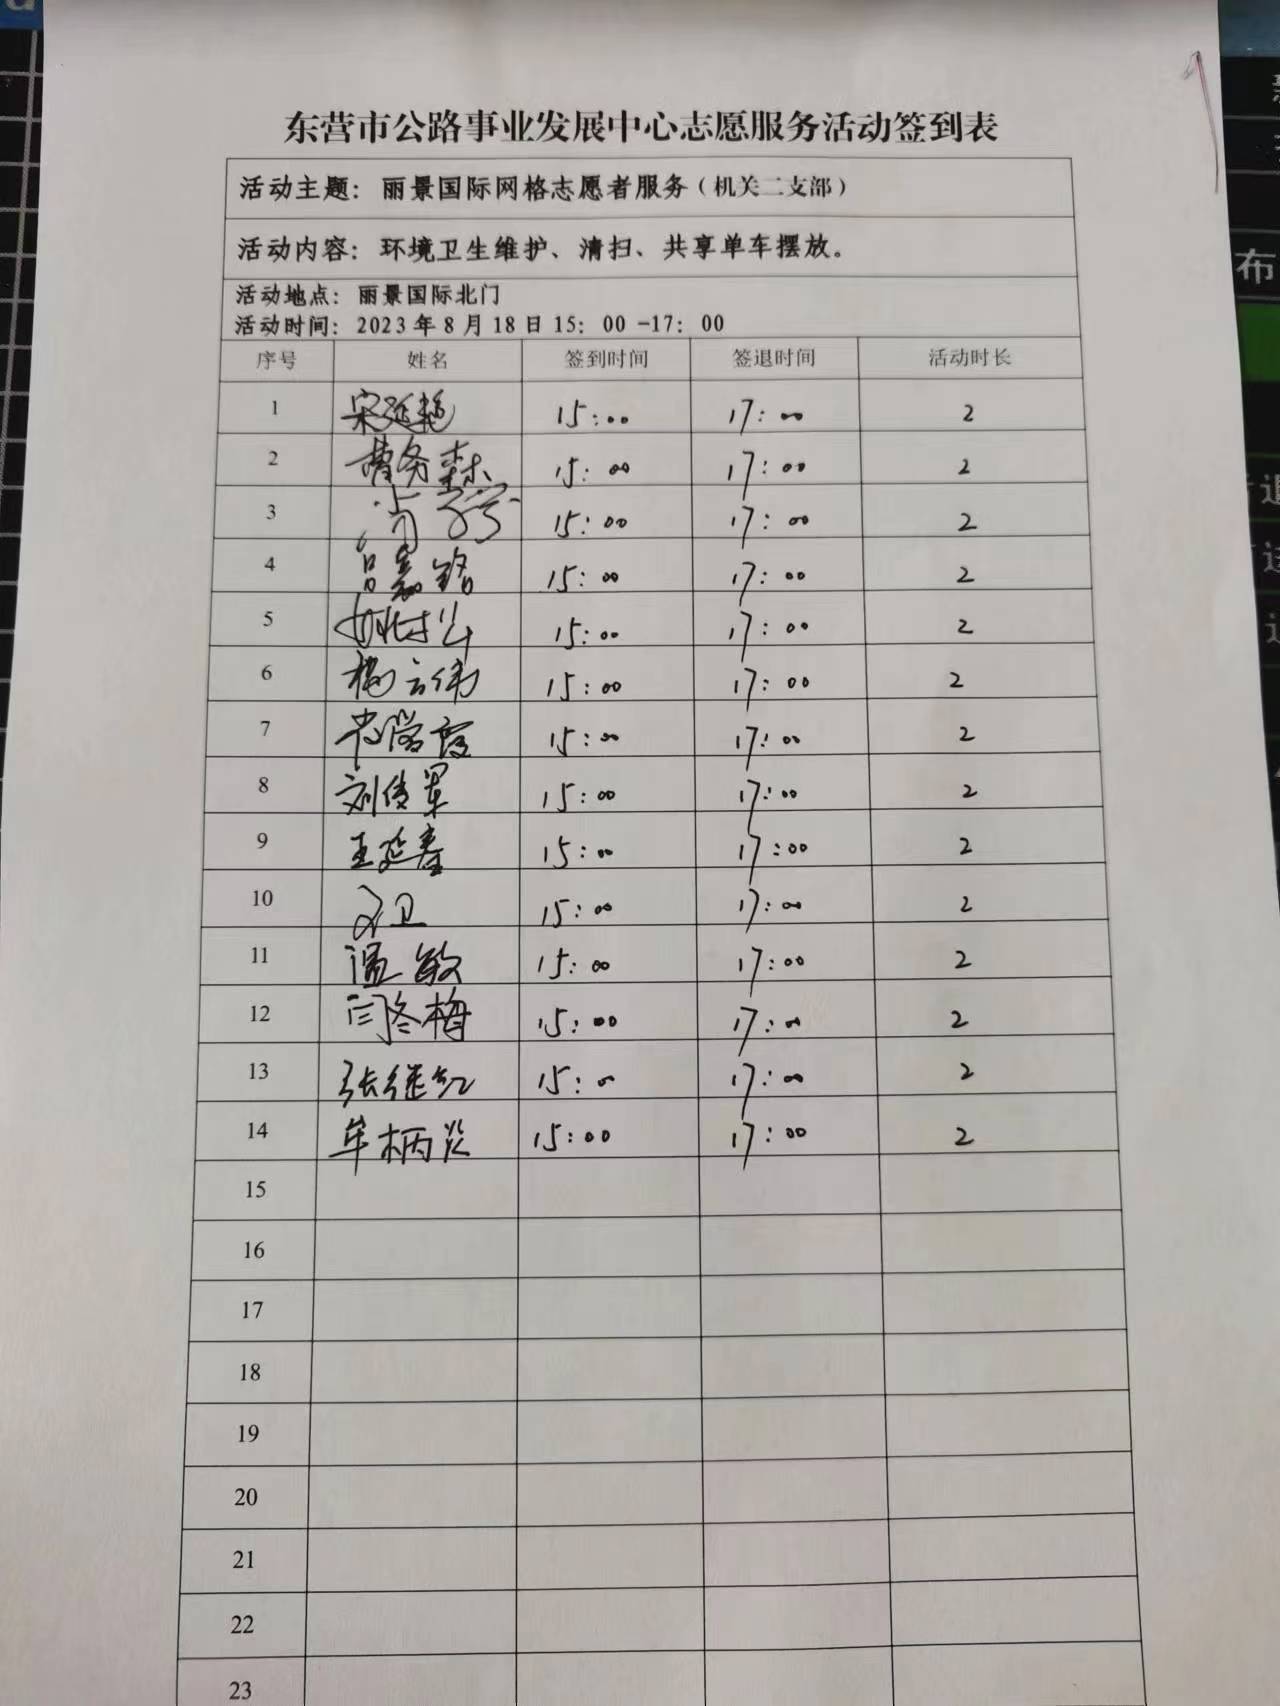 东营市公路事业发展中心志愿服务活动签到表
活动主题：丽景国际网格志愿者服务（机关二支部）
活动内容：环境卫生维护、清扫、共享单车摆放。
活动地点：丽景国际北门
活动时间：2023年8月18日15：00-17：00
序号 姓名 签到时间 签退时间 活动时长
1 宋延艳 15:00 17:00 2
2 曹务森 15:00 17:00 2
3 15:00 17:00 2
4 吕嘉铭 15:00 17:00 2
5 15:00 17:00 2
6 杨云伟 15:00 17:00 2
7 15:00 17:00 2
8 刘传军 15:00 17:00 2
9 王延春 15:00 17:00 2
10 卫 15:00 17:00 2
11 温敏 15:00 17:00 2
12 闫冬梅 15:00 17:00 2
13 张继红 15:00 17:00 2
14 牟柄 15:00 17:00 2
15
16
17
18
19
20
21
22
23
布